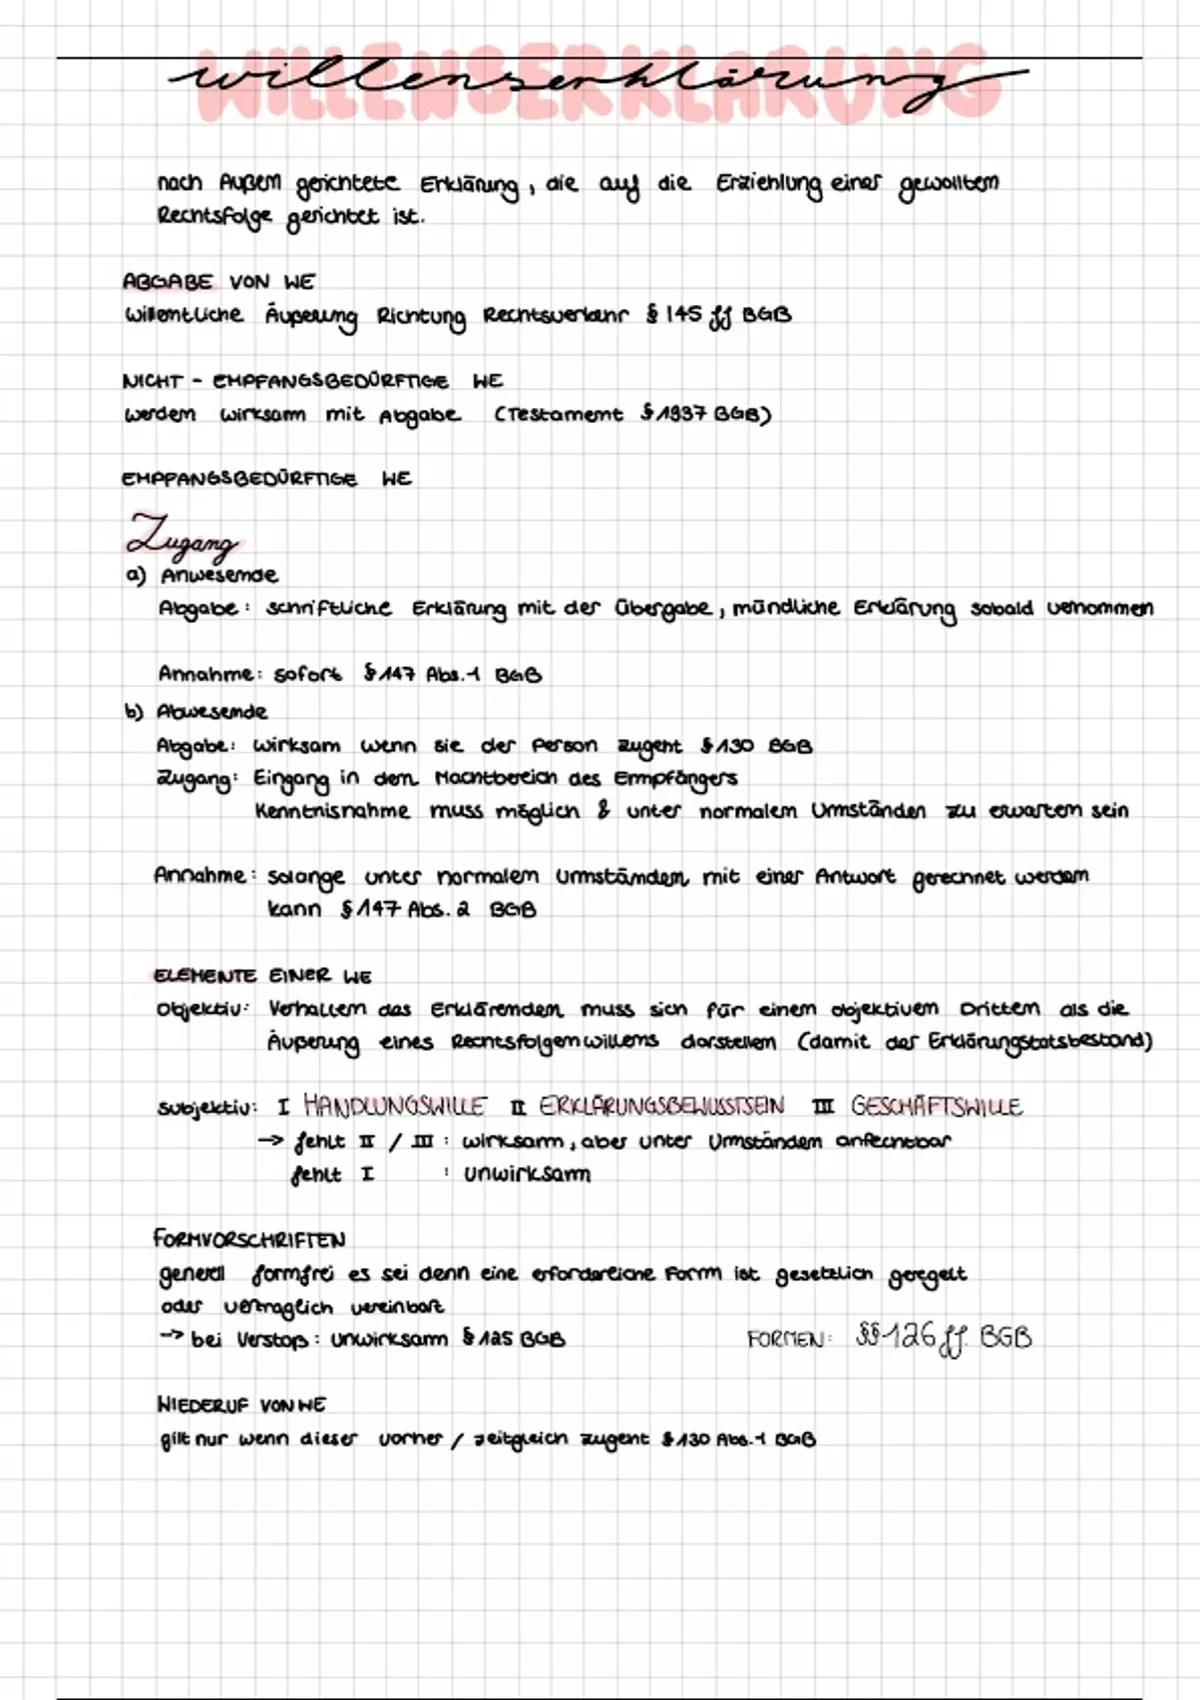 WILLENSERKLÄRUNG
willenserklärung
nach Außen gerichtete Erklärung, die auf die Erziehlung einer gewollten
Rechtsfolge gerichtet ist.
ABGABE VON WE
willentliche Äußerung Richtung Rechtsverkehr § 145 ff BGB
NICHT - EMPFANGSBEDÜRFTIGE WE
werden wirksam mit Abgabe (Testament § 1937 BGB)
EMPFANGSBEDÜRFTIGE WE
Zugang
a) Anwesende
Abgabe: schriftliche Erklärung mit der Übergabe, mündliche Erklärung sobald vernommen
Annahme: sofort § 147 Abs. 1 BGB
b) Abwesende
Abgabe: wirksam wenn sie der Person zugeht § 130 BGB
Zugang: Eingang in den Machtbereich des Empfängers
Kenntnisnahme muss möglich & unter normalen Umständen zu erwarten sein
Annahme: solange unter normalen Umständen mit einer Antwort gerechnet werden
kann § 147 Abs. 2 BGB
ELEMENTE EINER WE
objektiv: Verhalten das Erklärenden muss sich für einen objektiven Dritten als die
Äußerung eines Rechtsfolgenwillens darstellen (damit der Erklärungstatsbestand)
subjektiv: I HANDLUNGSWILLE II ERKLÄRUNGSBEWUSSTSEIN III GESCHÄFTSWILLE
→ fehlt II / III : wirksam, aber unter Umständen anfechtbar
fehlt I : unwirksam
FORMVORSCHRIFTEN
generell formfrei es sei denn eine erfordereiche Form ist gesetzlich geregelt
oder vertraglich vereinbart
→ bei Verstoß: unwirksam § 125 BGB FORMEN: §§ 126 ff. BGB
WIEDERUF VON WE
gilt nur wenn dieser vorher / zeitgleich zugeht § 130 Abs. 1 BGB